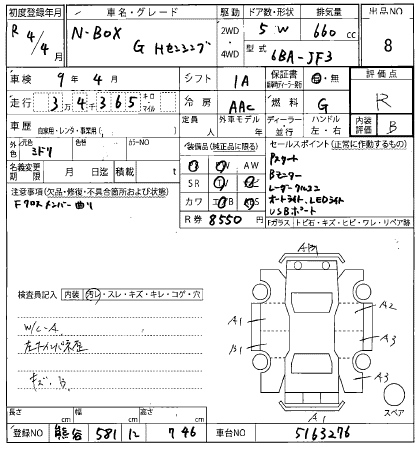 初度登録年月 車名・グレード 駆動 ドア数・形状 排気量 出品NO
R 4/4月 N-BOX G Hセンシング 2WD 4WD 5 W 660 cc 8
型式 6BA-JF3
車検 9年4月 シフト IA 保証書 有・無 評価点
走行 34365 キロ・マイル 冷房 AAC 燃料 G R
車歴 自家用・レンタ・事業用( ) 定員 人 外車モデル 年 ディーラー 並行 ハンドル 左・右 内装評価 B
色 元色 色替 カラーNO
名義変更期限 月 日迄 積載 t
装備品(純正品に限る)
SR
カワ
R券 8550円
セールスポイント(正常に作動するもの)
Pスタート
Bモニター
レーダークルコン
オートライト、LEDライト
USBポート
注意事項(欠品・修復・不具合箇所および状態)
Fクロスメンバー曲り
Fガラス トビ石・キズ・ヒビ・ワレ・リペア跡
検査員記入 内装 汚レ・スレ・キズ・キレ・コゲ・穴
W/C-A
キズ、B
A1
A2
B1
A3
A3
A1
スペア
長さ cm 幅 cm 高さ cm
登録NO 熊谷 581 ひ 746 車台NO 5163276